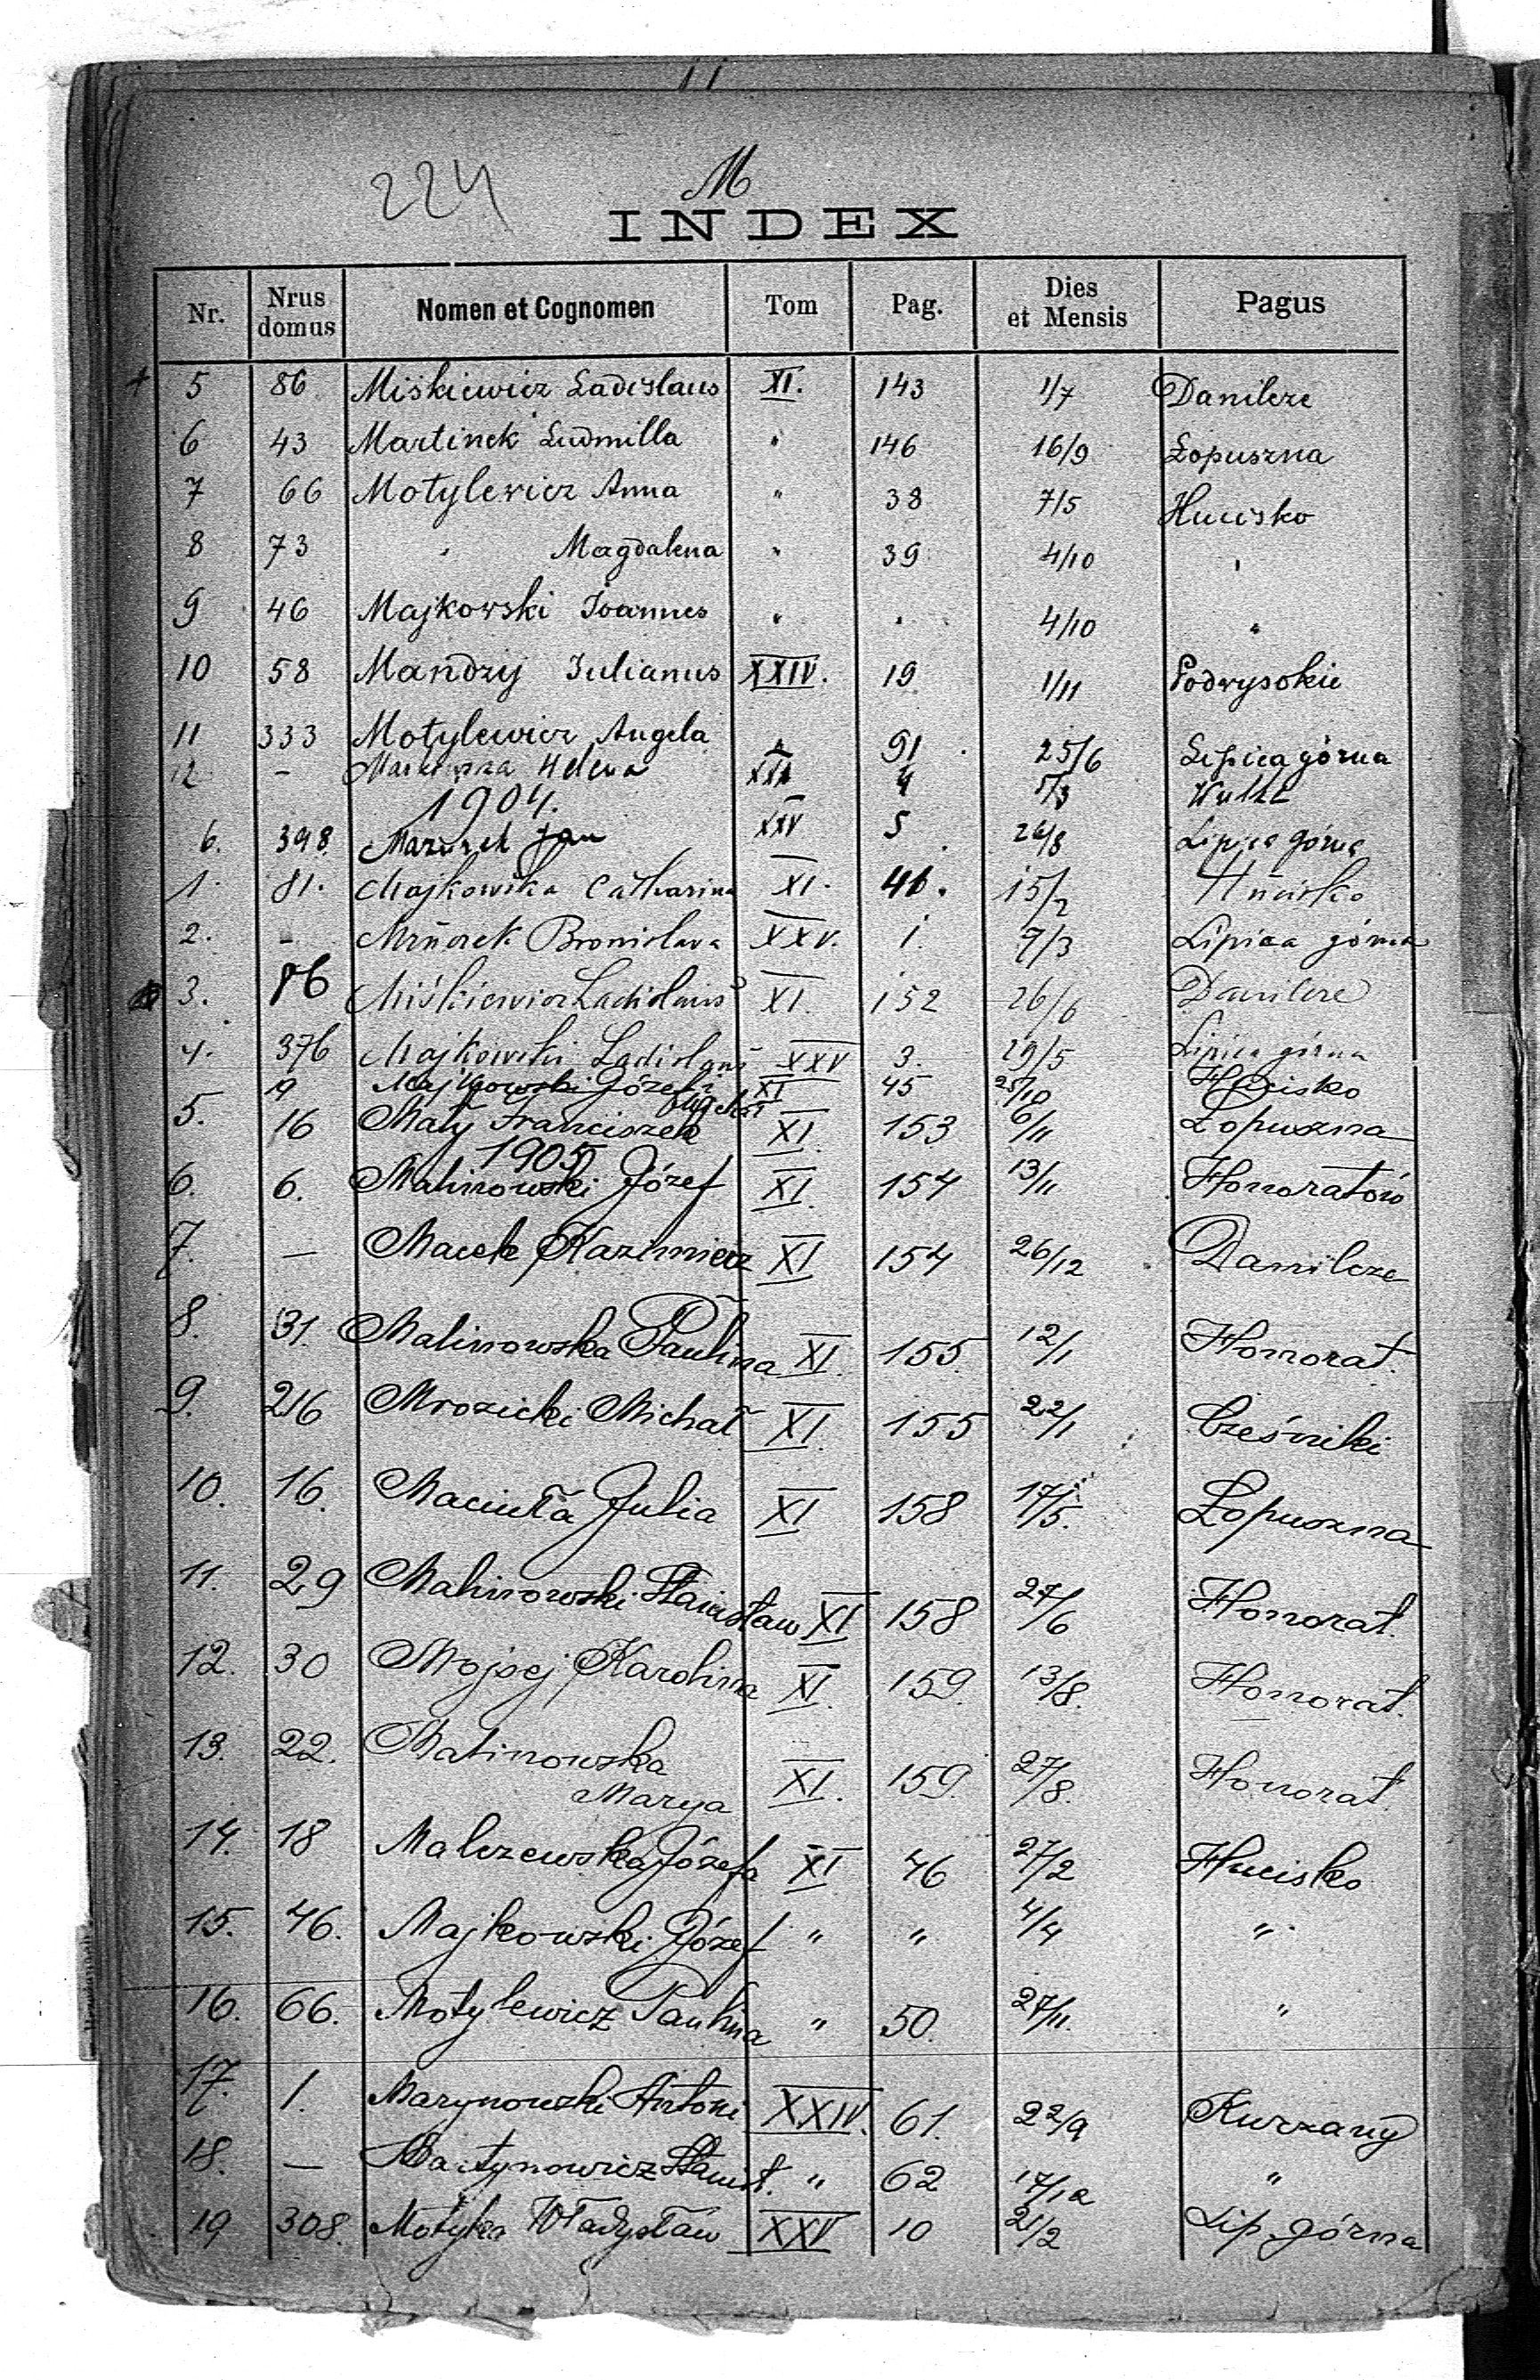 224
M
INDEX
Nr. Nrus domus Nomen et Cognomen Tom Pag. Dies et Mensis Pagus
+ 5 86 Miśkiewicz Ladislaus XI. 143 1/7 Danilcze
6 43 Martinek Ludmilla " 146 16/9 Łopuszna
7 66 Motylewicz Anna " 38 7/5 Hucisko
8 73 " Magdalena " 39 4/10 "
9 46 Majkowski Joannes " " 4/10 "
10 58 Mandzij Julianus XXIV. 19 1/11 Podwysokie
11 333 Motylewicz Angela " 91 25/6 Lipica górna
12 - Helena 4
1904.
6. 398 Mazurek Jan XXV 5 26/8 Lipica górna
1. 81. Majkowska Catharina XI. 41. 15/2 Hucisko
2. - Mrňorek Bronislava XXV. 1. 7/3 Lipica górna
3. 86 Miśkiewicz Ladislaus XI. 152 26/6 Danilcze
4. 376 Majkowski Ladislaus XXV 3. 29/5 Lipica górna
9 Majkowski Józef XI 45 25/10 Hucisko
5. 16 Mały Franciszek XI. 153 6/11 Łopuszna
1905
6. 6. Malinowski Józef XI. 154 13/11 Honoratów
7. — Macek Kazimierz XI 154 26/12 Danilcze
8. 31. Malinowska Paulina XI. 155 12/1 Honorat.
9. 26 Mrozicki Michał XI. 155 22/1 Cześniki
10. 16. Maciuła Julia XI 158 17/5. Łopuszna
11. 29 Malinowski Stanisław XI 158 27/6 Honorat.
12. 30 Mojsej Karolina XI. 159. 13/8. Honorat.
13. 22. Malinowska
Marya XI. 159. 27/8. Honorat.
14. 18 Malczewska Józefa XI 46 27/2 Hucisko
15. 46. Majkowski Józef " " 4/4 "
16. 66. Motylewicz Paulina " 50. 27/11. "
17. 1. Marynowski Antoni XXIV. 61. 22/9 Kurzany
18. — Martynowicz Stanisł. " 62 17/12 "
19 308. Motyka Władysław XXV 10 21/2 Lip. górna